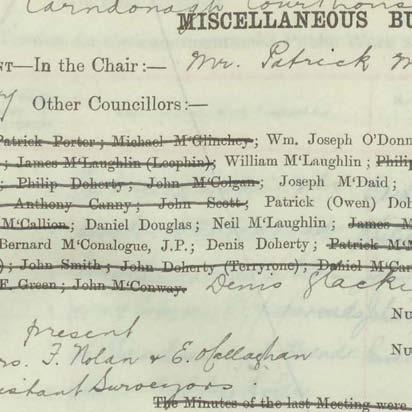 Carndonagh Courthous
MISCELLANEOUS BU
NT—In the Chair:— Mr. Patrick M
Other Councillors:—
Patrick Porter; Michael M'Glinchey; Wm. Joseph O'Donn
; James M'Laughlin (Leophin); William M'Laughlin; Phili
; Philip Doherty; John M'Colgan; Joseph M'Daid;
Anthony Canny; John Scott; Patrick (Owen) Doh
M'Callion; Daniel Douglas; Neil M'Laughlin; James M
Bernard M'Conalogue, J.P.; Denis Doherty; Patrick M'M
); John Smith; John Doherty (Terryrone); Daniel M'Car
E. Green; John M'Conway. Denis Glacki
Nu
present
rs. F. Nolan & E. O'Callaghan
Nu
istant Surveyors.
The Minutes of the last Meeting were